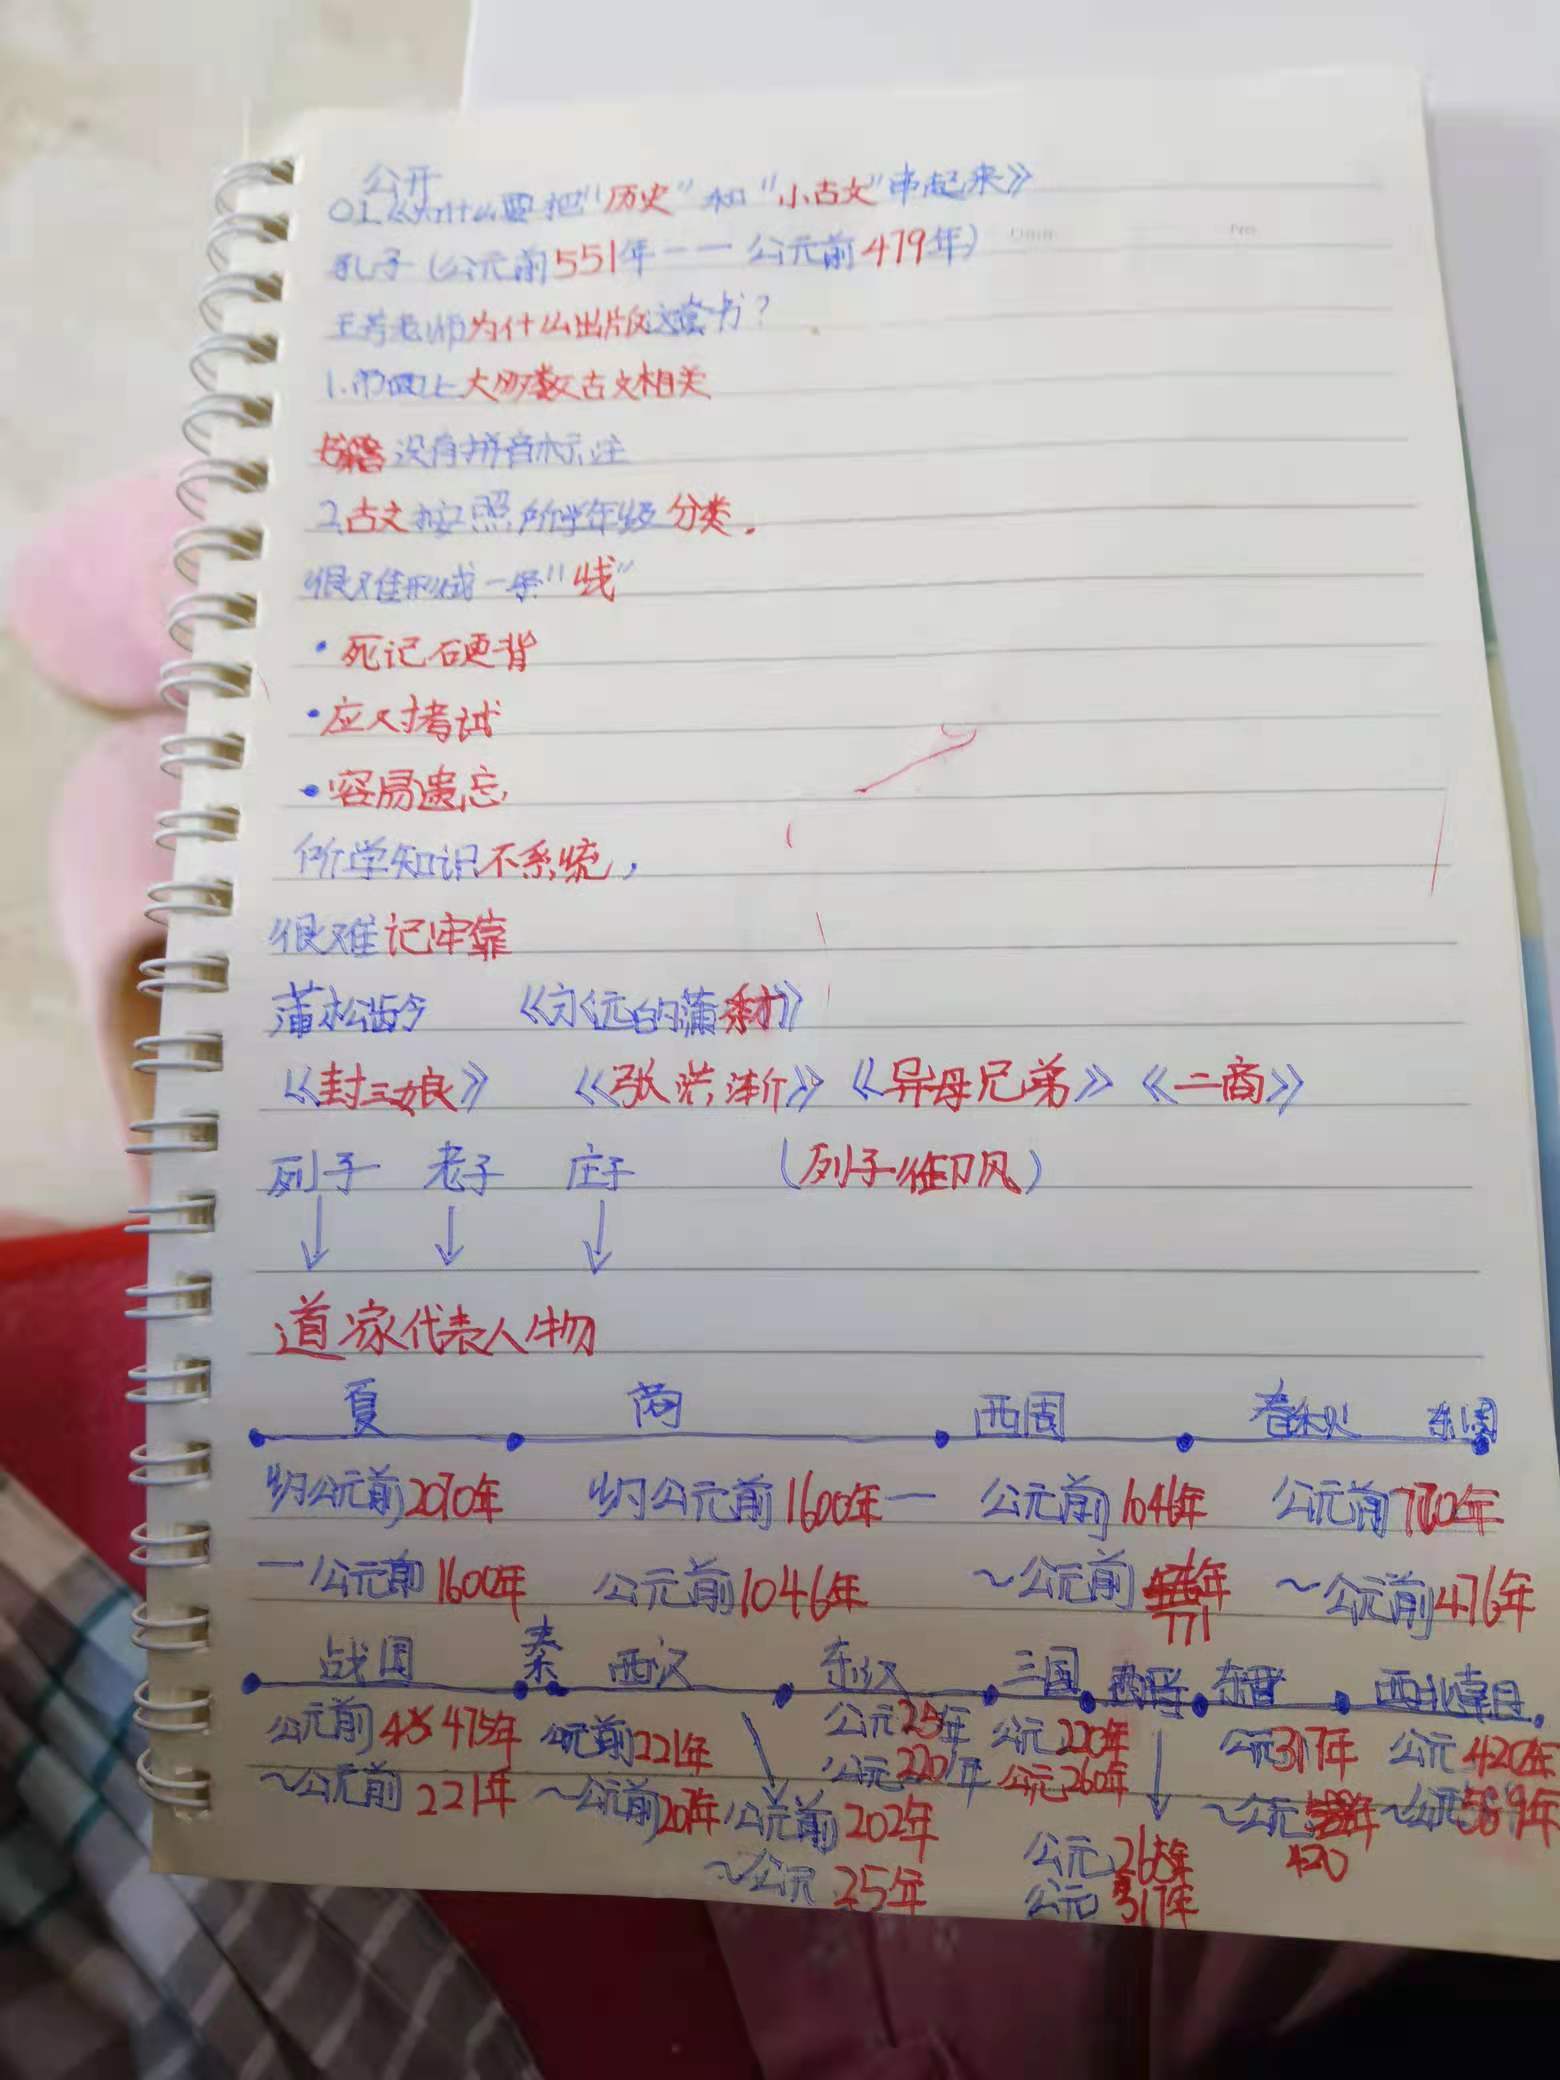 公开
01《为什么要把“历史”和“小古文”串起来》
孔子(公元前551年——公元前479年)
王芳老师为什么出版这套书?
1.市面上大多数古文相关
书籍没有拼音标注
2.古文按照所学年级分类.
很难形成一条“线”
·死记硬背
·应对考试
·容易遗忘
所学知识不系统,
很难记牢靠
蒲松龄 《永远的蒲秀才》
《封三娘》 《张洪渐》《异母兄弟》《二商》
列子 老子 庄子 (列子御风)
↓ ↓ ↓
道家代表人物
夏 商 西周 春秋 东周
约公元前2070年 约公元前1600年— 公元前1046年 公元前770年
—公元前1600年 公元前1046年 ~公元前771年 ~公元前476年
战国 秦 西汉 东汉 三国 西晋 东晋
公元前475年 公元前221年 公元25年 公元220年 公元317年 公元420年
~公元前221年 ~公元前207年 公元220年 公元260年 ~公元420年 ~公元589年
公元前202年 公元265年
~公元25年 公元317年